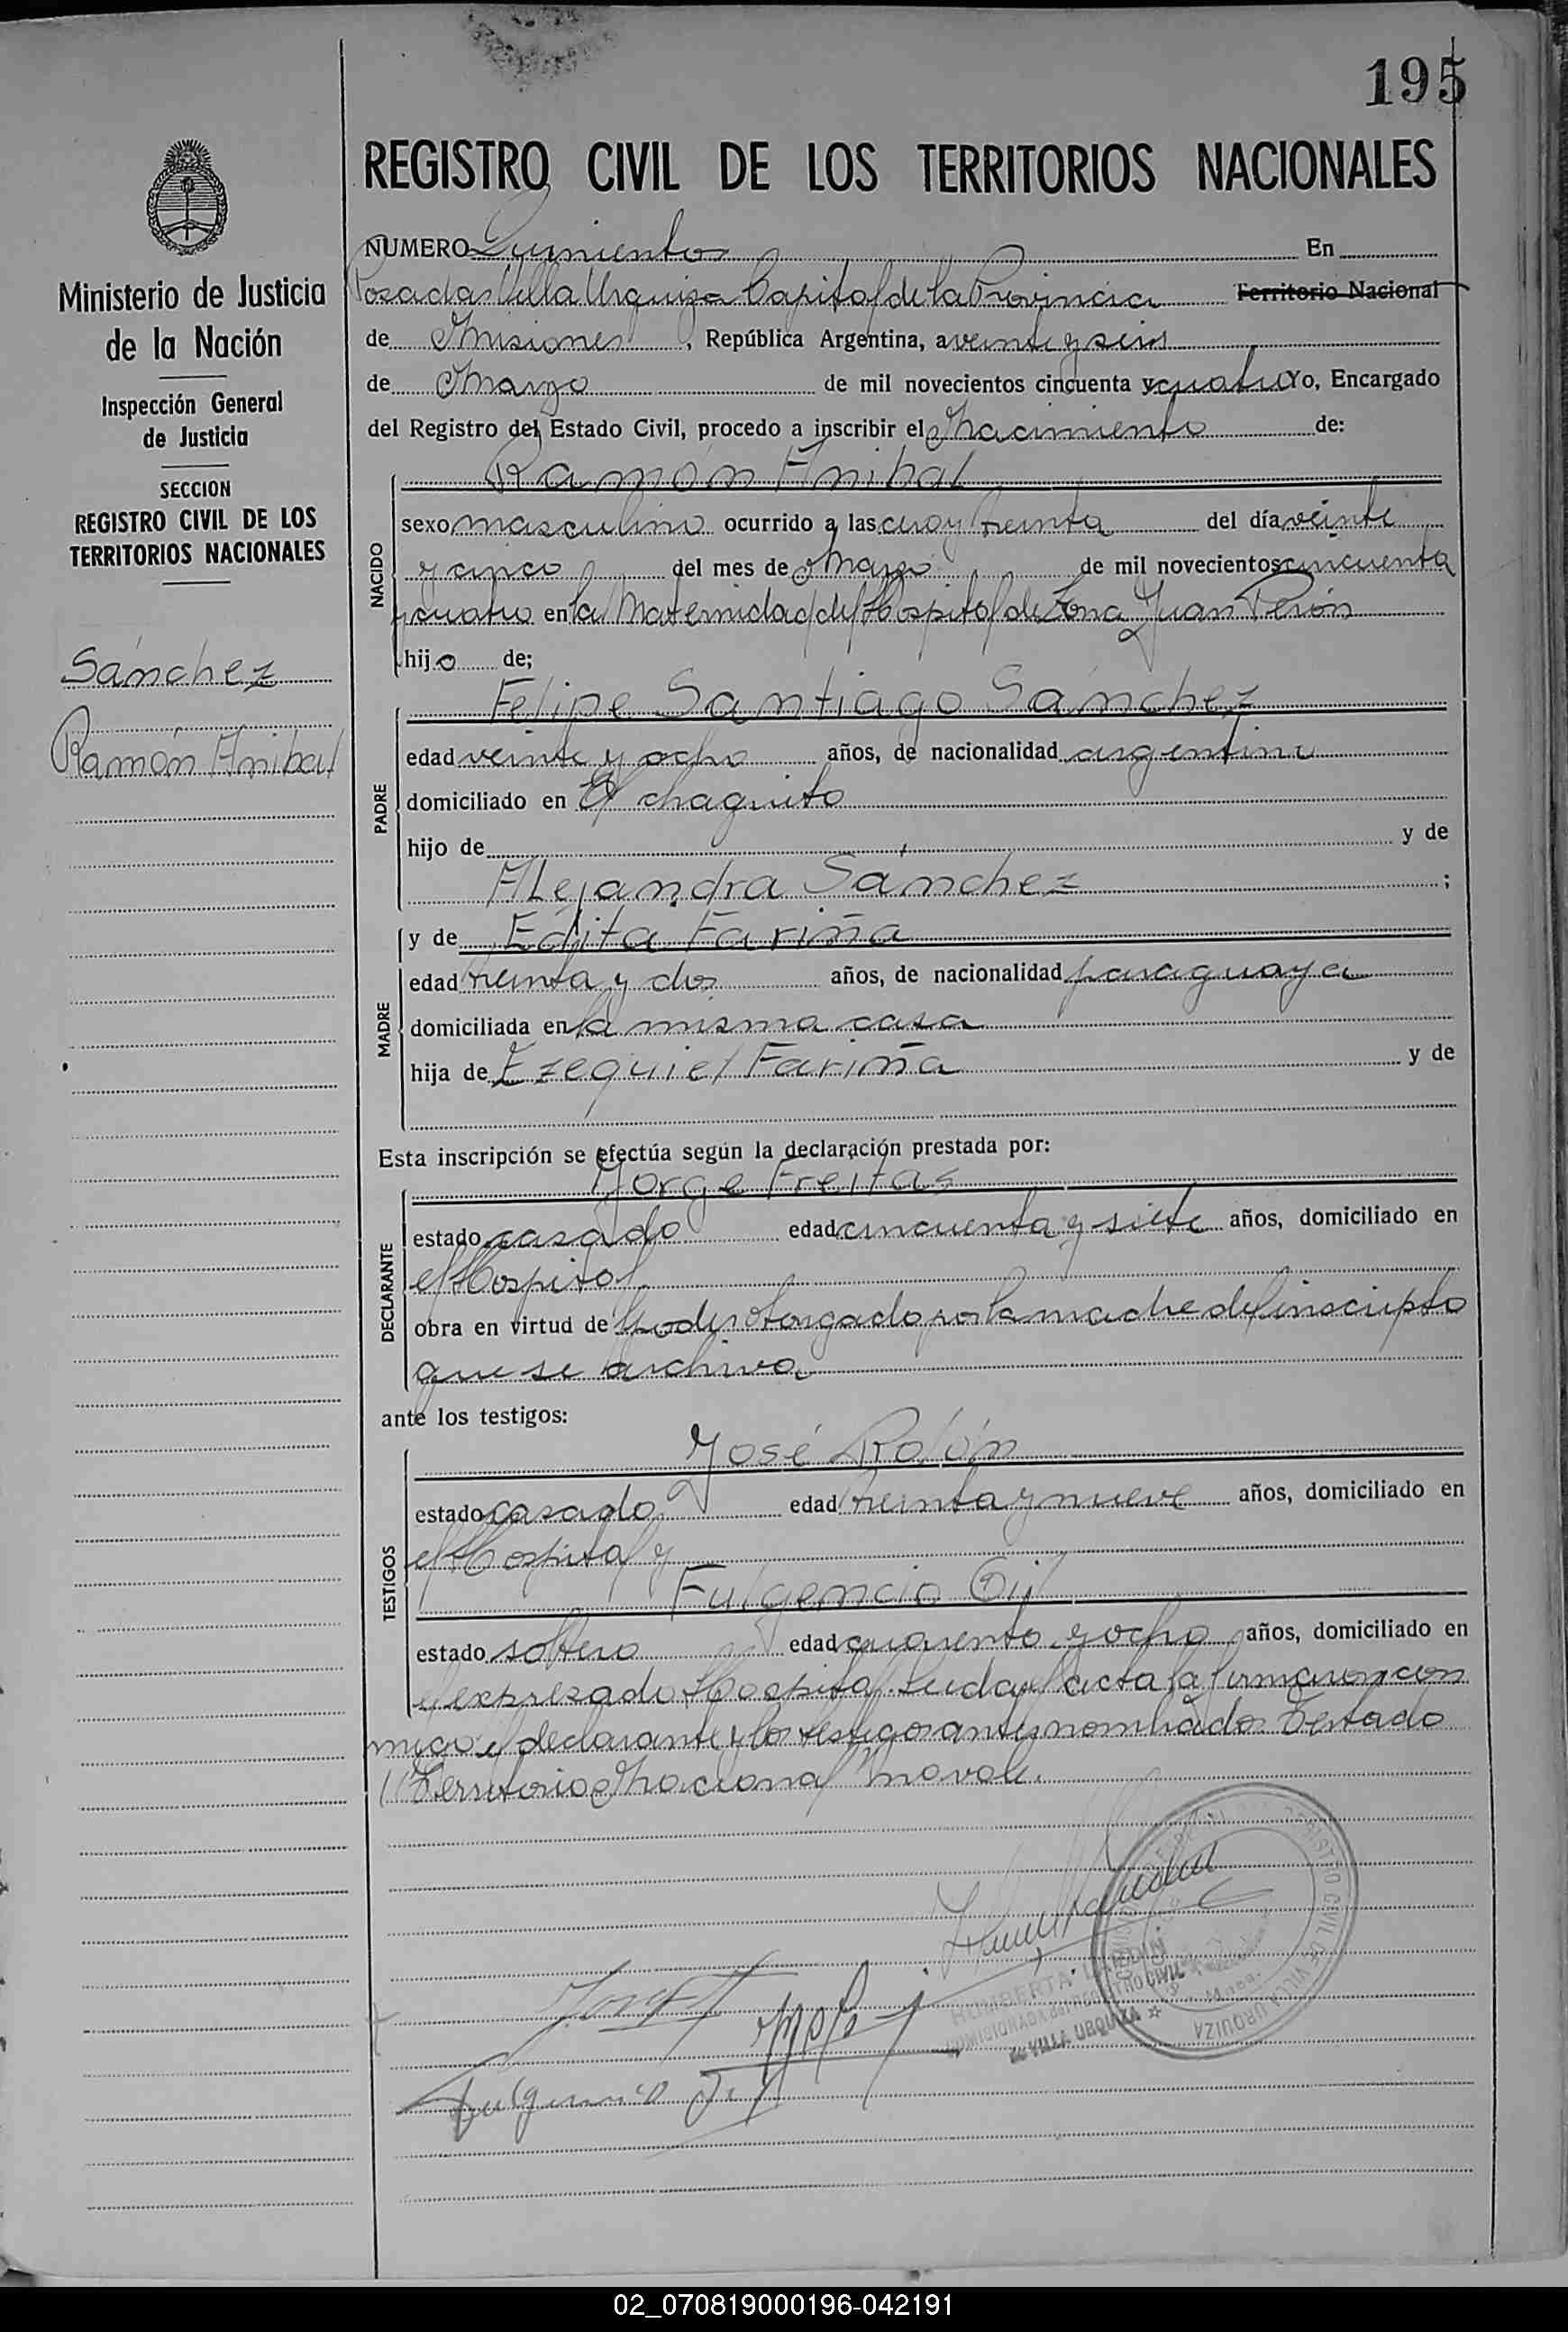 195
REGISTRO CIVIL DE LOS TERRITORIOS NACIONALES
Ministerio de Justicia
de la Nación
Inspección General
de Justicia
SECCION
REGISTRO CIVIL DE LOS
TERRITORIOS NACIONALES
Sánchez
Ramón Anibal
NUMERO Quinientos En
Posadas Villa Urquiza Capital de la Provincia Territorio Nacional
de Misiones, República Argentina, a veinte y seis
de Marzo de mil novecientos cincuenta y cuatro Yo, Encargado
del Registro del Estado Civil, procedo a inscribir el Nacimiento de:
NACIDO
Ramón Anibal
sexo masculino ocurrido a las cero y treinta del día veinte
y cinco del mes de Marzo de mil novecientos cincuenta
y cuatro en la Maternidad del Hospital de Zona Juan Perón
hijo de;
PADRE
Felipe Santiago Sánchez
edad veinte y ocho años, de nacionalidad argentina
domiciliado en El chaquito
hijo de y de
Alejandra Sánchez ;
MADRE
y de Edita Fariña
edad treinta y dos años, de nacionalidad paraguaya
domiciliada en la misma casa
hija de Ezequiel Fariña y de
Esta inscripción se efectúa según la declaración prestada por:
DECLARANTE
Jorge Freitas
estado casado edad cincuenta y siete años, domiciliado en
el Hospital
obra en virtud de poder otorgado por la madre del inscripto
que se archiva
ante los testigos:
TESTIGOS
José Rolón
estado casado edad treinta y nueve años, domiciliado en
el Hospital y
Fulgencio Gil
estado soltero edad cuarenta y ocho años, domiciliado en
el expresado Hospital. Leida el acta la firmaron con
migo el declarante y los testigos antes nombrados Testado
"Territorio Nacional" no vale.
REGISTRO CIVIL DE VILLA URQUIZA
REGISTRO CIVIL
DE VILLA URQUIZA
Fulgencio Gil
02_070819000196-042191